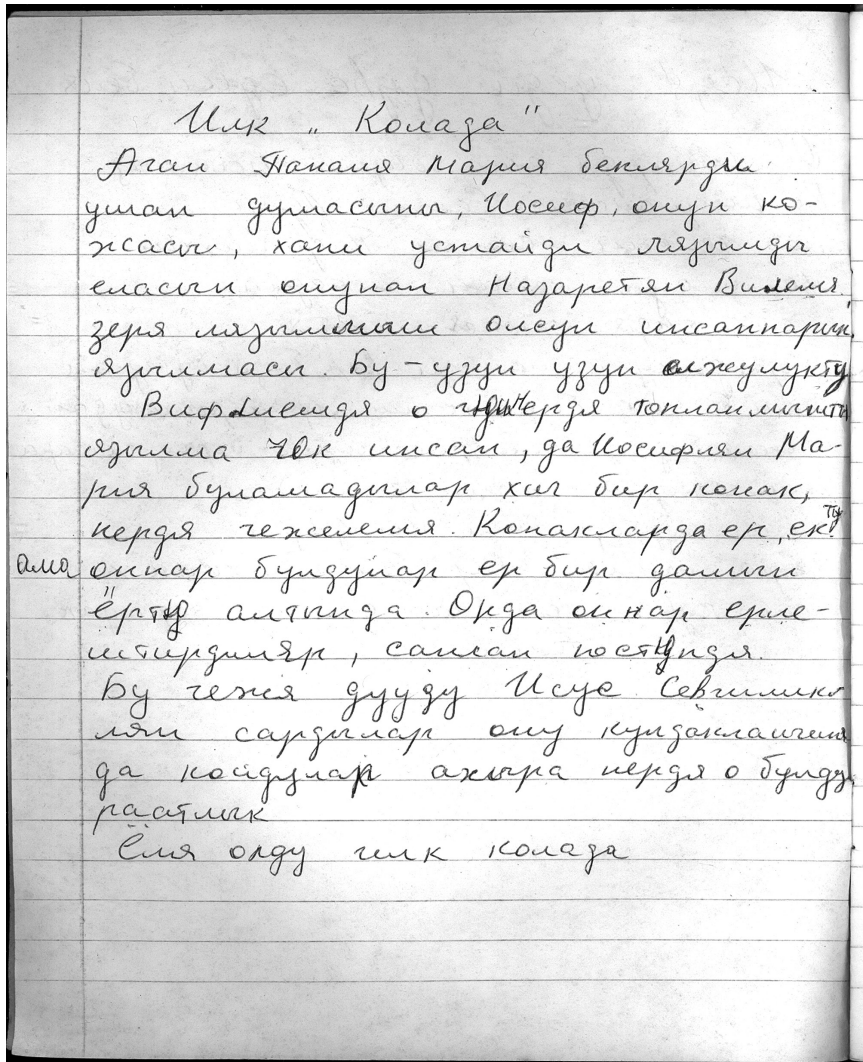 Илк „ Колада "
Ачан Панаия Мария беклярди
ушак думасыны, Иосиф, онун ко-
жасы, хани устайди лязымды
еласын онунан Назаретян Вилемя,
зеря лязымныш олсун инсаннарын
язылмасы. Бу – узун узун олжулукту
Вифлиемдя о гюннердя топланмышты
язылма чок инсан, да Иосифлян Ма-
рия буламадылар хич бир конак,
нердя гежелемя. Конакларда ер екту
ама оннар булдулар ер бир дамын
ёртю алтында. Орда оннар ерле-
штирдиляр, саман постюндя.
Бу гежя дууду Исус. Севгиликл
лян сардылар ону кундакланчеия
да койдулар ахыра нердя о булду
раатлык
Ёля олду илк колада